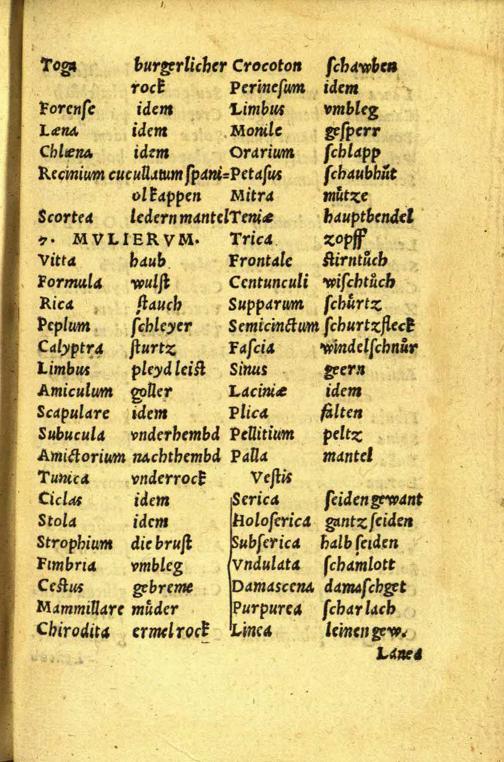 Toga burgerlicher
rock
Forense idem
Læna idem
Chlæna idem
Recinium cucullatum spani=
ol kappen
Scortea ledern mantel
7. MVLIERVM.
Vitta haub
Formula wulst
Rica stauch
Peplum schleyer
Calyptra sturtz
Limbus pleyd leist
Amiculum goller
Scapulare idem
Subucula vnderhembd
Amictorium nachthembd
Tunica vnderrock
Ciclas idem
Stola idem
Strophium die brust
Fimbria vmbleg
Cestus gebreme
Mammillare müder
Chirodita ermel rock
Crocoton schawben
Perinesum idem
Limbus vmbleg
Monile gesperr
Orarium schlapp
Petasus schaubhůt
Mitra mütze
Teniæ hauptbendel
Trica zopff
Frontale stirntůch
Centunculi wischtůch
Supparum schürtz
Semicinctum schurtzfleck
Fascia windelschnůr
Sinus geern
Laciniæ idem
Plica falten
Pellitium peltz
Palla mantel
Vestis
Serica seiden gewant
Holoserica gantz seiden
Subserica halb seiden
Vndulata schamlott
Damascena damaschget
Purpurea scharlach
Linea leinen gew.
Lanea